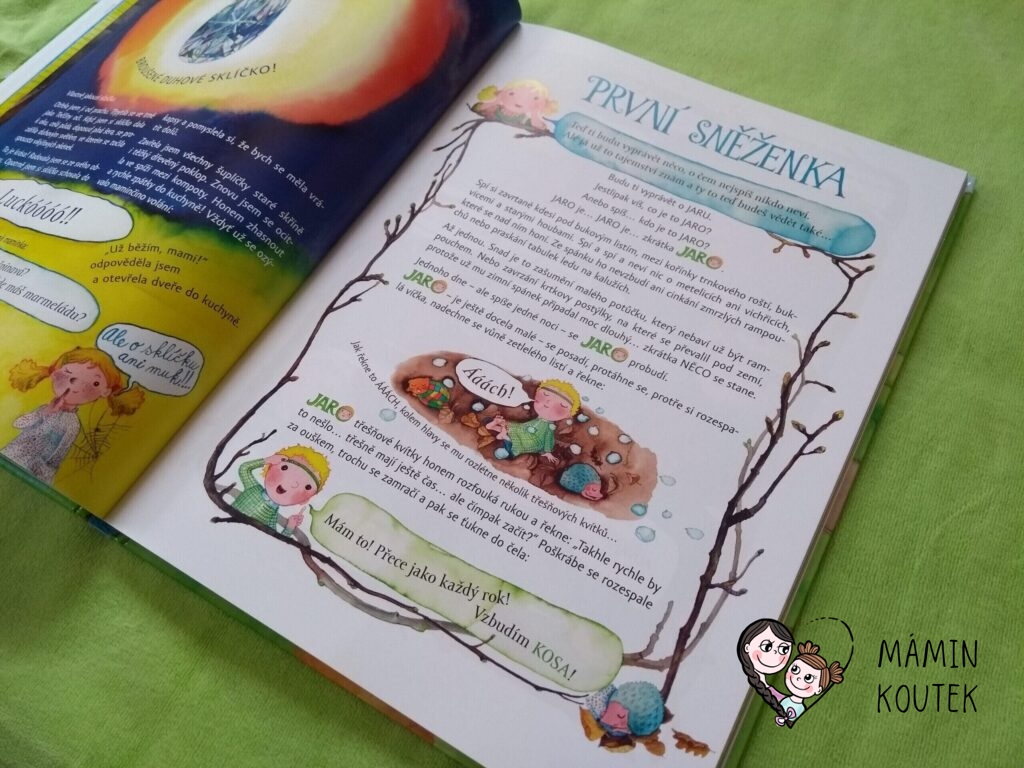 BROUŠENÉ DUHOVÉ SKLÍČKO!
kapsy a pomyslela si, že bych se měla vrá-
tit dolů.
Zavřela jsem všechny šuplíčky staré skříně
i těžký dřevěný poklop. Znovu jsem se ocit-
la ve spíži mezi kompoty. Honem zhasnout
a rychle zpátky do kuchyně! Vždyť už se ozý-
valo maminčino volání:
Luckóóóó!!
„Už běžím, mami!"
odpověděla jsem
a otevřela dveře do kuchyně.
máš marmeládu?
Ale o sklíčku
ani muk!!
PRVNÍ SNĚŽENKA
Teď ti budu vyprávět něco, o čem nejspíš nikdo neví.
Ale já už to tajemství znám a ty to teď budeš vědět také...
Budu ti vyprávět o JARU.
Jestlipak víš, co je to JARO?
Anebo spíš... kdo je to JARO?
JARO je... JARO je... zkrátka JARO.
Spí si zavrtané kdesi pod bukovým listím, mezi kořínky trnkového roští, buk-
vicemi a starými houbami. Spí a spí a neví nic o metelicích ani vichřicích,
které se nad ním honí. Ze spánku ho nevzbudí ani cinkání zmrzlých rampou-
chů nebo praskání tabulek ledu na kalužích.
Až jednou. Snad je to zašumění malého potůčku, který nebaví už být ram-
pouchem. Nebo zavrzání krtkovy postýlky, na které se převalil pod zemí,
protože už mu zimní spánek připadal moc dlouhý... zkrátka NĚCO se stane.
Jednoho dne – ale spíše jedné noci – se JARO probudí.
JARO – je ještě docela malé – se posadí, protáhne se, protře si rozespa-
lá víčka, nadechne se vůně zetlelého listí a řekne:
Áách!
Jak řekne to ÁÁÁCH, kolem hlavy se mu rozlétne několik třešňových kvítků...
JARO třešňové kvítky honem rozfouká rukou a řekne: „Takhle rychle by
to nešlo... třešně mají ještě čas... ale čímpak začít?" Poškrábe se rozespale
za ouškem, trochu se zamračí a pak se ťukne do čela:
Mám to! Přece jako každý rok!
Vzbudím KOSA!
MÁMIN
KOUTEK